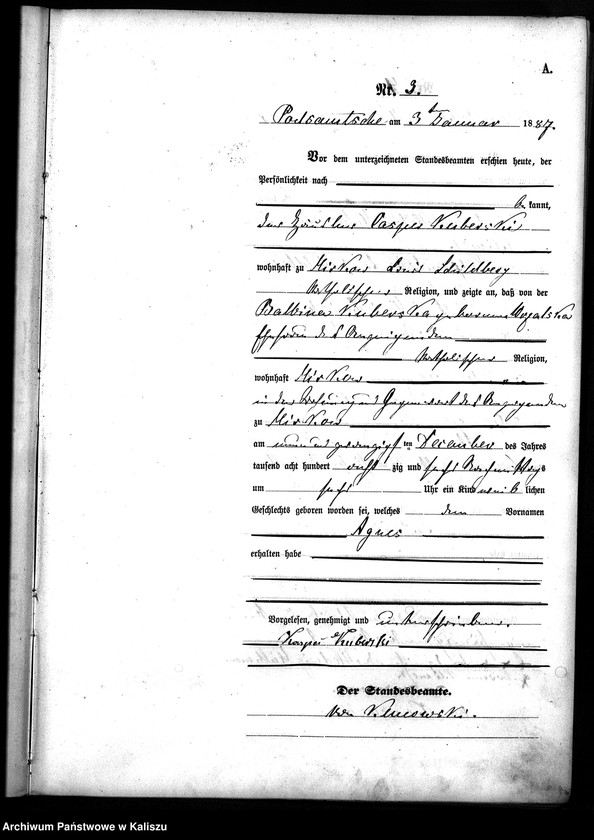 A.
Nr. 3.
Podsamtsche am 3t Januar 1887.
Vor dem unterzeichneten Standesbeamten erschien heute, der
Persönlichkeit nach
be kannt,
der Häusler Casper Kuberski
wohnhaft zu Mirkow Kreis Schildberg
katholischer Religion, und zeigte an, daß von der
Balbina Kuberska geborenen
Ehefrau des Anzeigenden
katholischer Religion,
wohnhaft Mirkow
in der Wohnung und Gegenwart des Anzeigenden
zu Mirkow
am neun und zwanzigsten ten December des Jahres
tausend acht hundert acht zig und sechs Nachmittags
um sechs Uhr ein Kind weib lichen
Geschlechts geboren worden sei, welches den Vornamen
Agnes
erhalten habe
Vorgelesen, genehmigt und unterschrieben.
Kasper Kuberski
Der Standesbeamte.
Archiwum Państwowe w Kaliszu